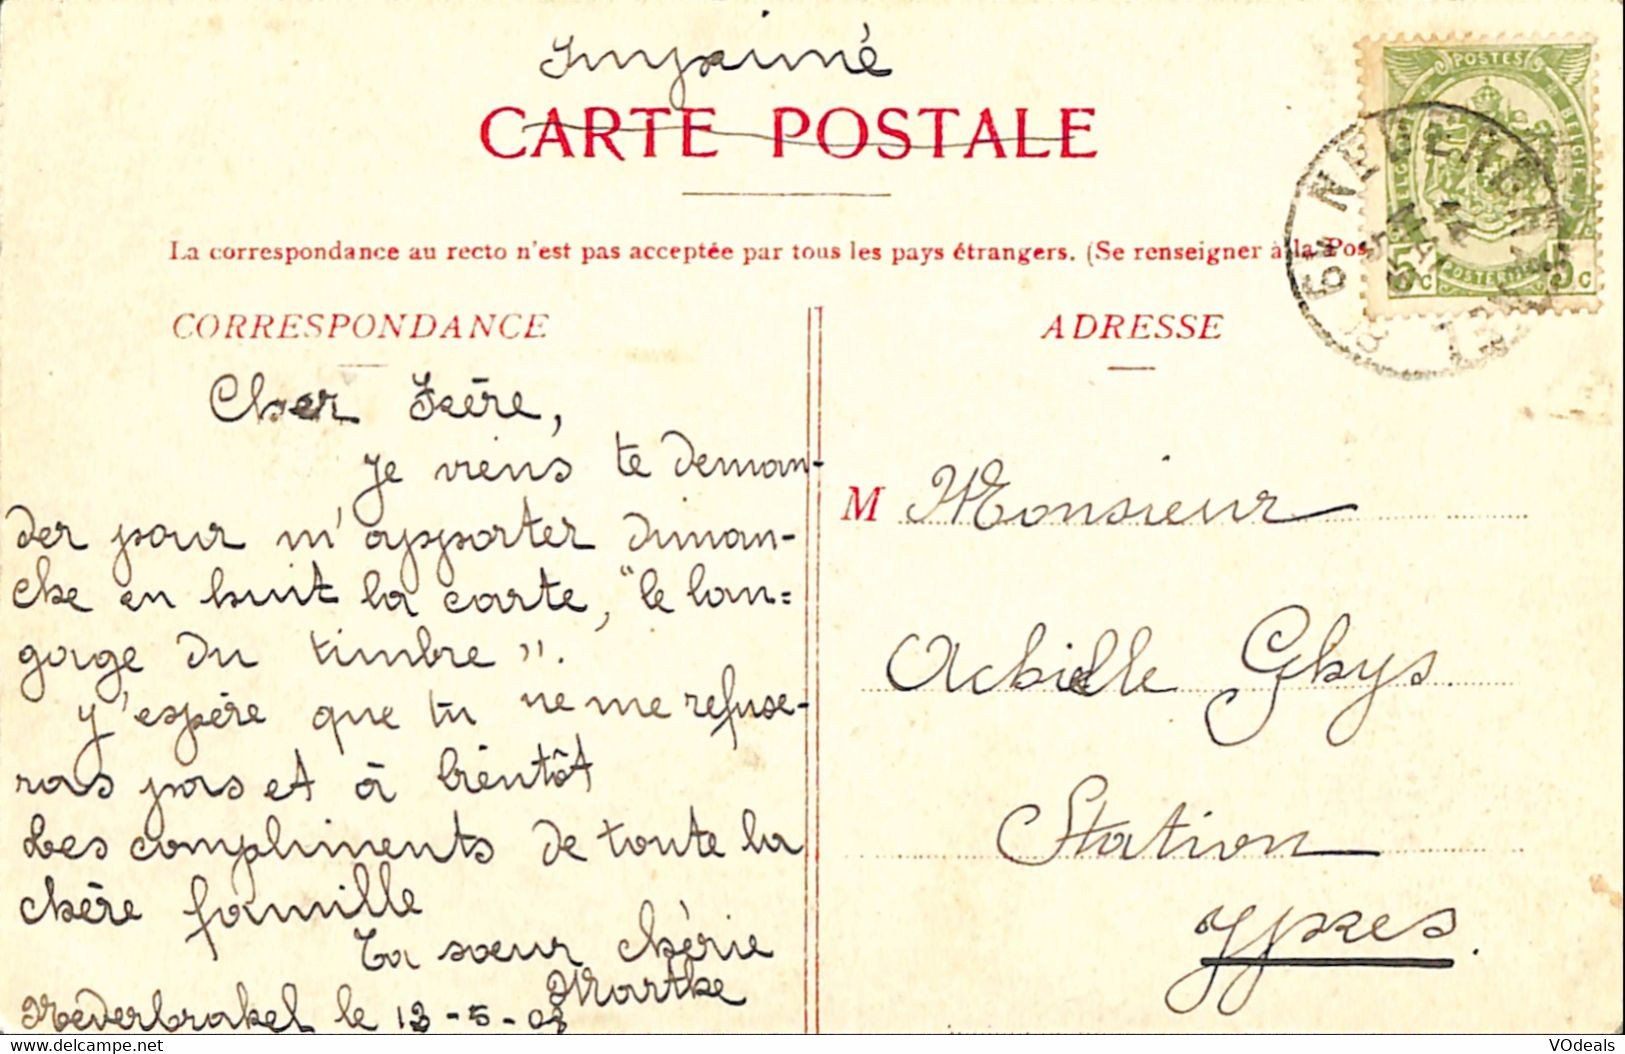 Imprimé
CARTE POSTALE
La correspondance au recto n'est pas acceptée par tous les pays étrangers. (Se renseigner à la Pos
POSTES
BELGIE
5c 5c
CORRESPONDANCE
Cher Frère,
Je viens te deman-
der pour m'apporter diman-
che en huit la carte, "le lan=
gage du timbre".
J'espère que tu ne me refuse-
ras pas et à bientôt
Les compliments de toute la
chère famille
Ta sœur chérie
Marthe
Nederbrakel le 13-5-08
ADRESSE
M Monsieur
Achielle Ghys.
Station
Ypres.
www.delcampe.net
VOdeals